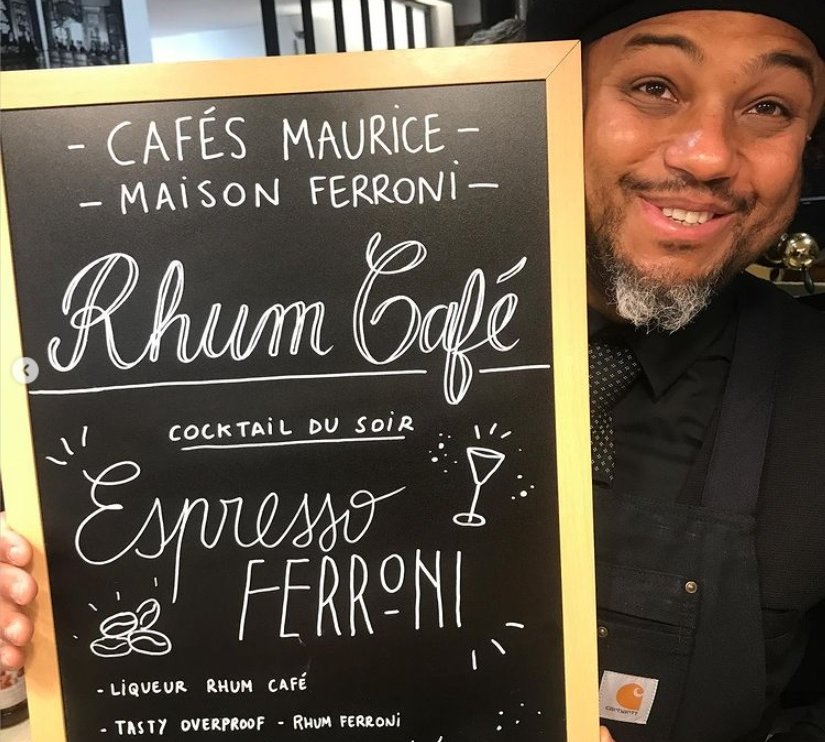 - CAFÉS MAURICE -
- MAISON FERRONI -
Rhum Café
COCKTAIL DU SOIR
Espresso
FERRONI
- LIQUEUR RHUM CAFÉ
- TASTY OVERPROOF - RHUM FERRONI
carhartt